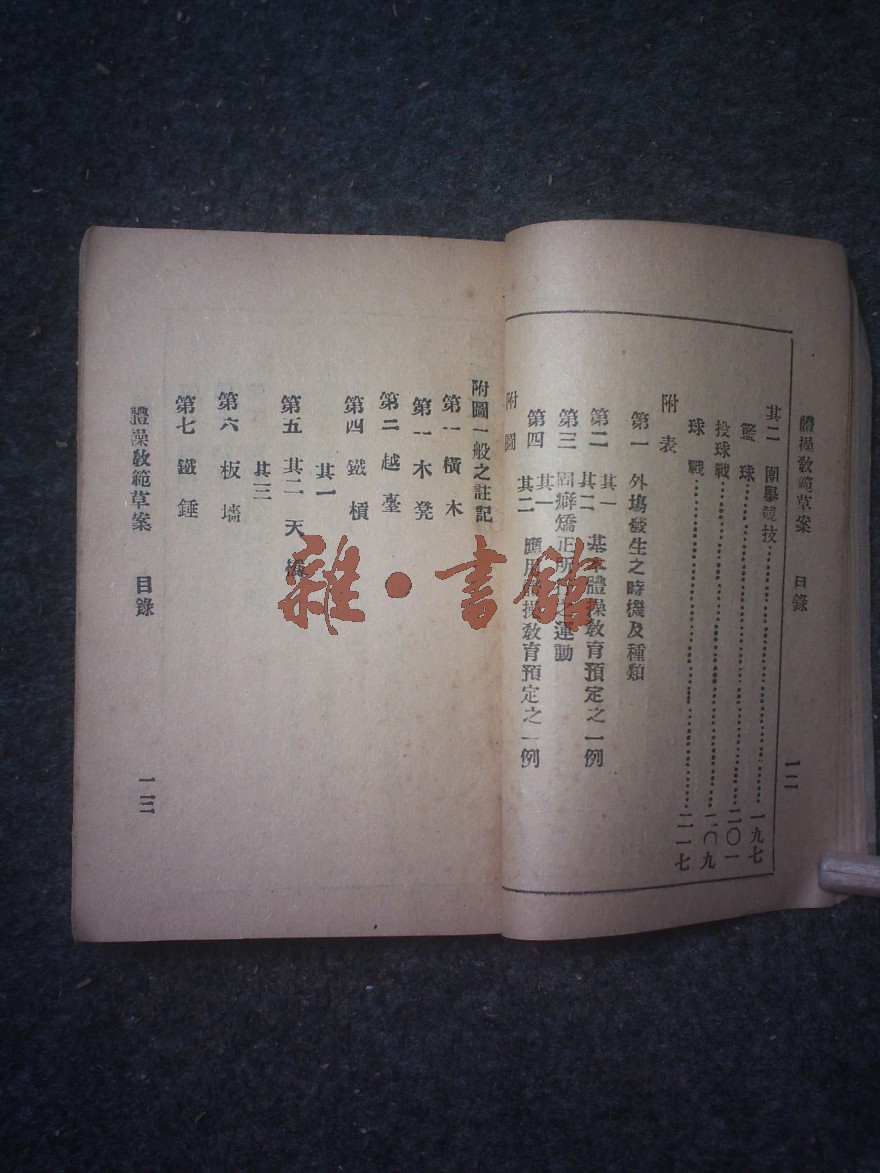 體操教範草案 目錄 一二
其二 團舉競技 一九七
籃球 二〇一
投球戰 二〇九
球戰 二一七
附表
第一 外塲發生之時機及種類
第二 其一 基本體操教育預定之一例
其二
第三 固癖矯正所之運動
第四 其一 應用體操教育預定之一例
其二
附圖
附圖一般之註記
第一 橫木
第一 木凳
第二 越臺
第四 鐵槓
其一
第五 其二 天橋
其三
第六 板墻
第七 鐵錘
體操教範草案 目錄 一三
雜·書館